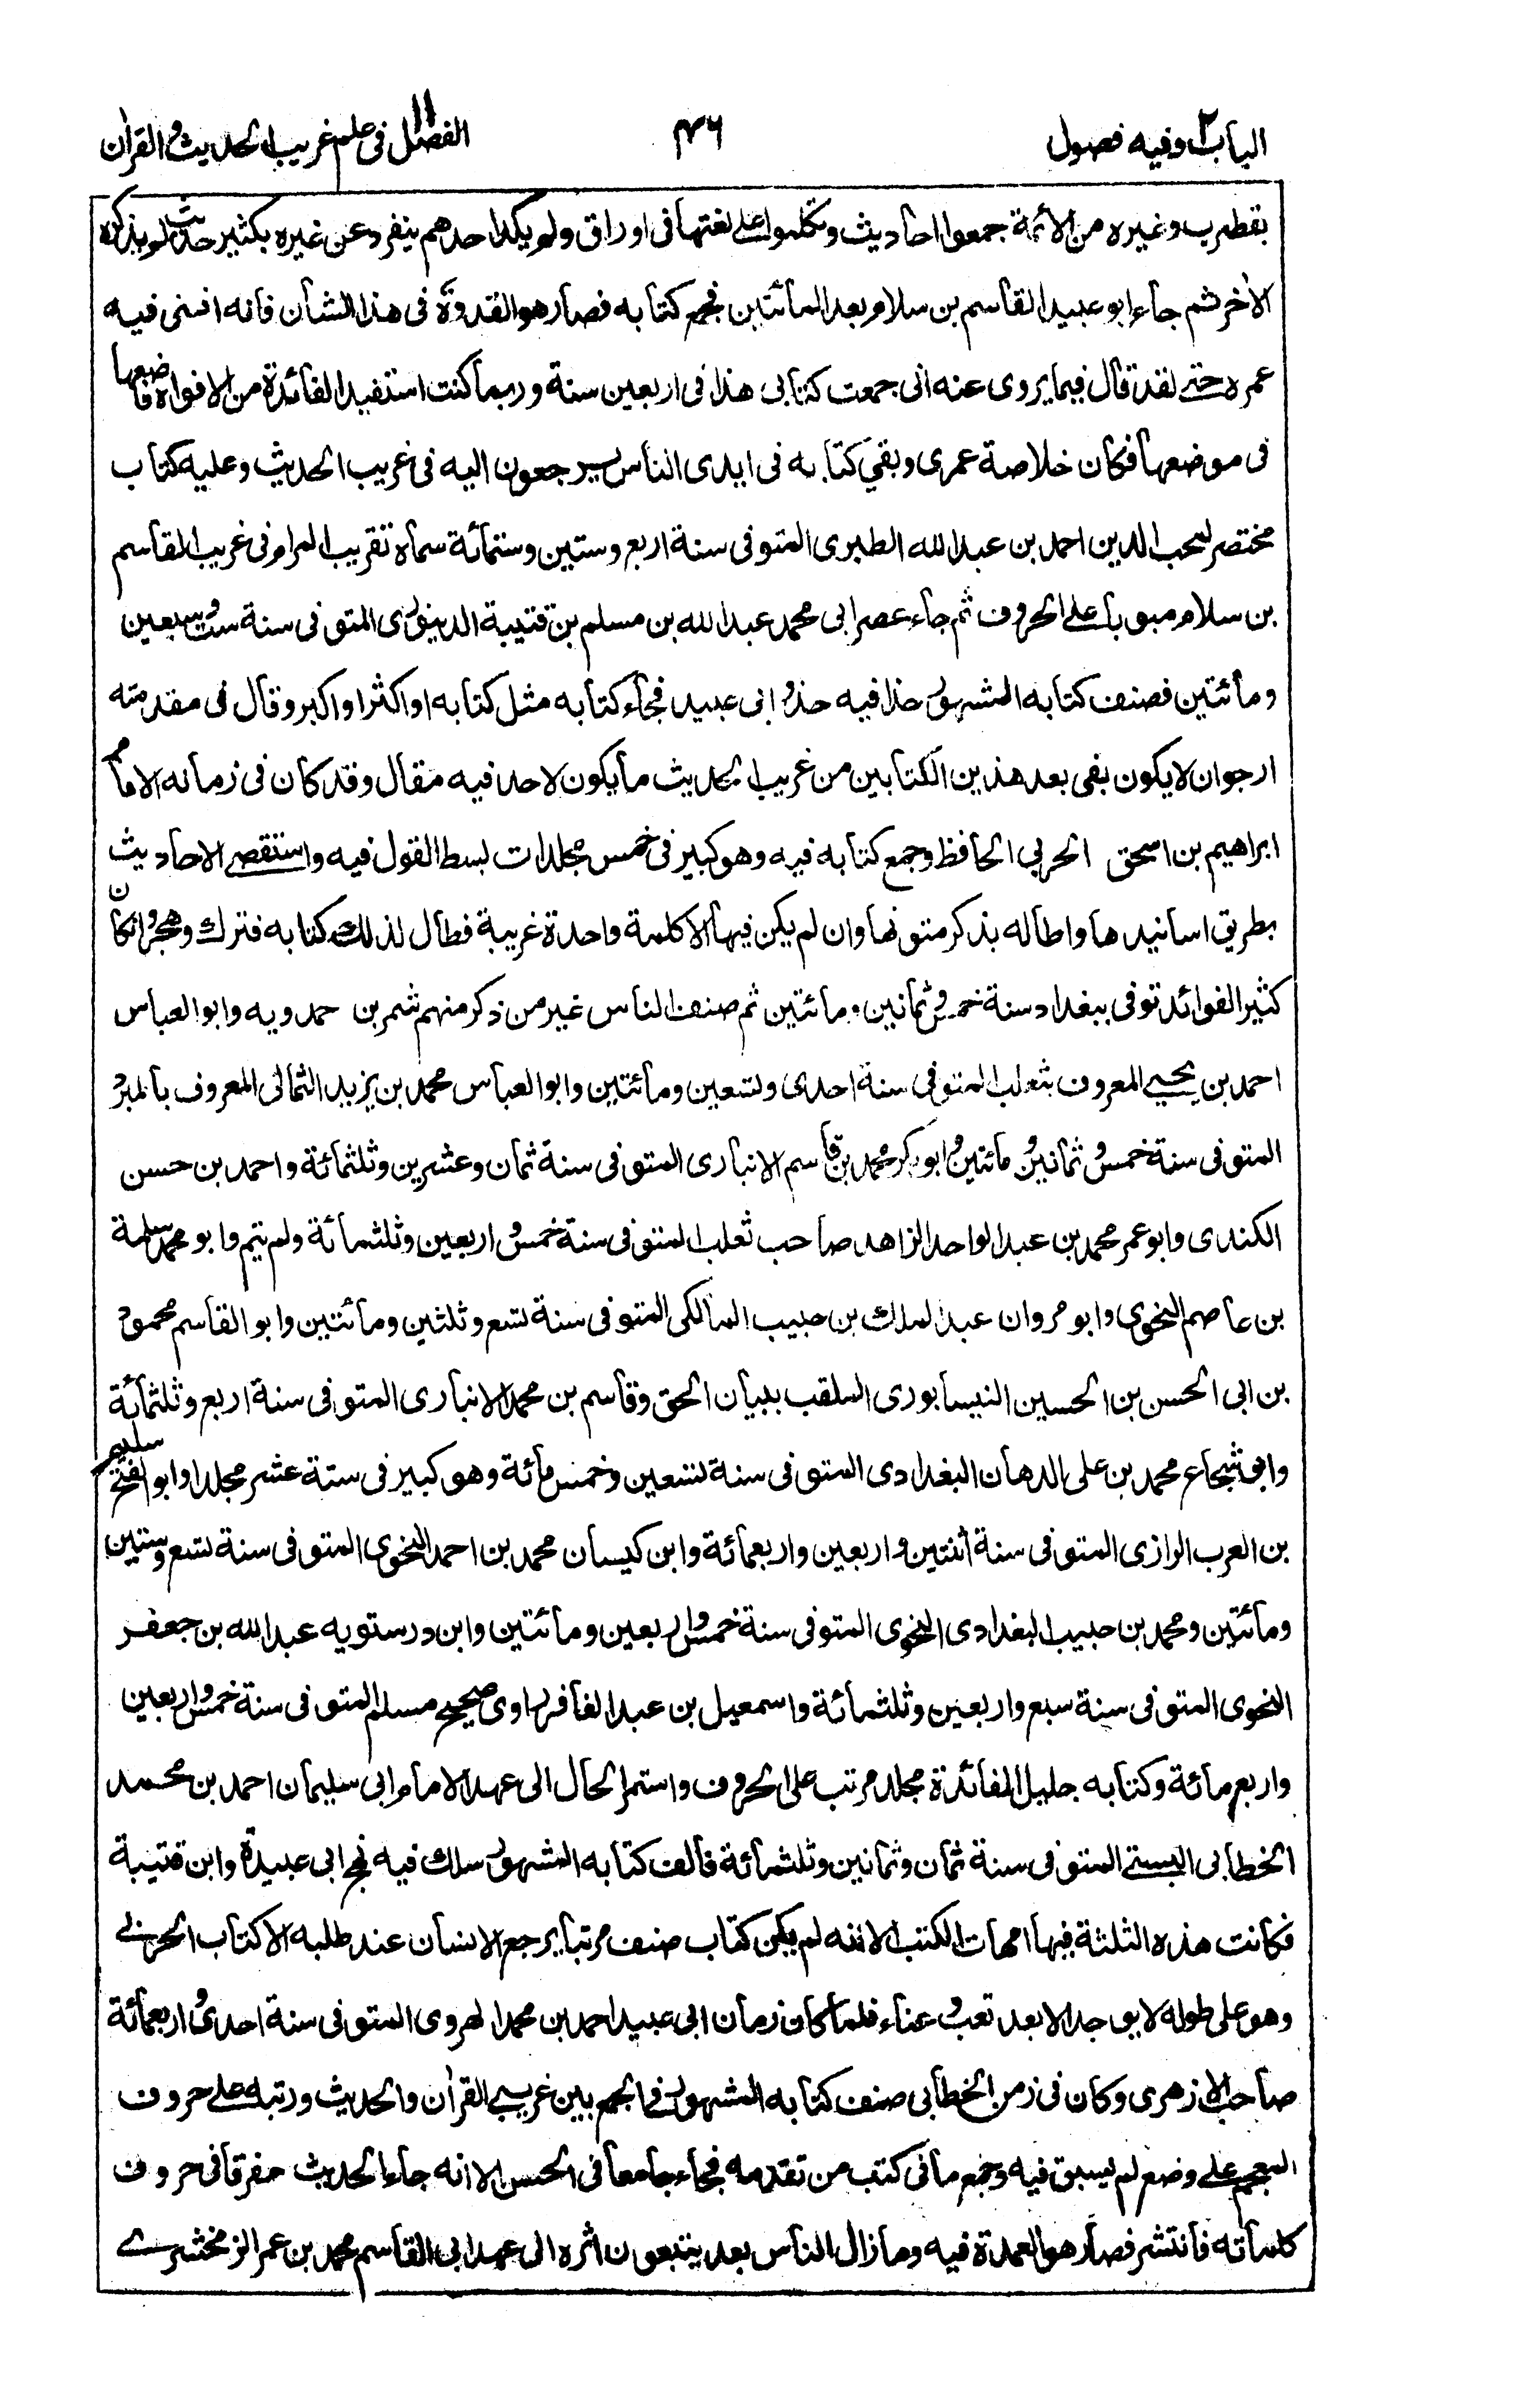 الباب ٢ وفيه فصول
٤٦
الفصل ١١ فى علم غريب الحديث والقرآن
بقطرب وغيره من الأئمة جمعوا احاديث وتكلموا على لغتها فى اوراق ولم يكد احدهم ينفرد عن غيره بكثير حديث لم يذكره
الآخر ثم جاء ابو عبيد القاسم بن سلام بعد المائتين فجمع كتابه فصار هو القدوة فى هذا الشأن فانه افنى فيه
عمره حتى لقد قال فيما يروى عنه انى جمعت كتابى هذا فى اربعين سنة وربما كنت استفيد الفائدة من الافواه فاضعها
فى موضعها فكان خلاصة عمرى وبقي كتابه فى ايدى الناس يرجعون اليه فى غريب الحديث وعليه كتاب
مختصر لمحب الدين احمد بن عبد الله الطبرى المتوفى سنة اربع وستين وستمائة سماه تقريب المرام فى غريب القاسم
بن سلام مبوبا على الحروف ثم جاء عصر ابى محمد عبد الله بن مسلم بن قتيبة الدينورى المتوفى سنة ست وسبعين
ومأئتين فصنف كتابه المشهور حذا فيه حذو ابى عبيد فجاء كتابه مثل كتابه او اكثر او اكبر وقال فى مقدمته
ارجو ان لا يكون بقى بعد هذين الكتابين من غريب الحديث ما يكون لاحد فيه مقال وقد كان فى زمانه الامام
ابراهيم بن اسحق الحربي الحافظ وجمع كتابه فيه وهو كبير فى خمس مجلدات بسط القول فيه واستقصى الاحاديث
بطريق اسانيدها واطاله بذكر متونها وان لم يكن فيها الا كلمة واحدة غريبة فطال لذلك كتابه فترك وهجر وان كان
كثير الفوائد توفى ببغداد سنة خمس وثمانين ومائتين ثم صنف الناس غير من ذكر منهم شمر بن حمدويه وابو العباس
احمد بن يحيى المعروف بثعلب المتوفى سنة احدى وتسعين ومأئتين وابو العباس محمد بن يزيد الثمالى المعروف بالمبرد
المتوفى سنة خمس وثمانين ومائتين وابو بكر محمد بن قاسم الانبارى المتوفى سنة ثمان وعشرين وثلثمائة واحمد بن حسن
الكندى وابو عمر محمد بن عبد الواحد الزاهد صاحب ثعلب المتوفى سنة خمس واربعين وثلثمائة ولم يتم وابو محمد سلمة
بن عاصم النحوى وابو مروان عبد الملك بن حبيب المالكى المتوفى سنة تسع وثلثين ومأئتين وابو القاسم محمود
بن ابى الحسن بن الحسين النيسابورى الملقب ببيان الحق وقاسم بن محمد الانبارى المتوفى سنة اربع وثلثمائة
وابو شجاع محمد بن على الدهان البغدادى المتوفى سنة تسعين وخمس مائة وهو كبير فى ستة عشر مجلدا وابو الفتح سليم
بن العرب الرازى المتوفى سنة اثنتين واربعين واربعمائة وابن كيسان محمد بن احمد النحوى المتوفى سنة تسع وستين
ومأئتين ومحمد بن حبيب البغدادى النحوى المتوفى سنة خمس واربعين ومأئتين وابن درستويه عبد الله بن جعفر
النحوى المتوفى سنة سبع واربعين وثلثمائة واسمعيل بن عبد الغافر راوى صحيح مسلم المتوفى سنة خمس واربعين
واربع مائة وكتابه جليل الفائدة مجلد مرتب على الحروف واستمر الحال الى عهد الامام ابى سليمان احمد بن محمد
الخطابى البستى المتوفى سنة ثمان وثمانين وثلثمائة فالف كتابه المشهور سلك فيه نهج ابى عبيدة وابن قتيبة
فكانت هذه الثلثة فيها امهات الكتب الا انه لم يكن كتاب صنف مرتبا يرجع الانسان عند طلبه الا كتاب الحربى
وهو على طوله لا يوجد الا بعد تعب وعناء فلما كان زمان ابى عبيد احمد بن محمد الهروى المتوفى سنة احدى واربعمائة
صاحب الازهرى وكان فى زمن الخطابى صنف كتابه المشهور فى الجمع بين غريبى القرآن والحديث ورتبه على حروف
المعجم على وضع لم يسبق فيه وجمع ما فى كتب من تقدمه فجاء جامعا فى الحسن الا انه جاء الحديث مفرقا فى حروف
كلماته فانتشر فصار هو العمدة فيه وما زال الناس بعده يتبعون اثره الى عهد ابى القاسم محمد بن عمر الزمخشرى